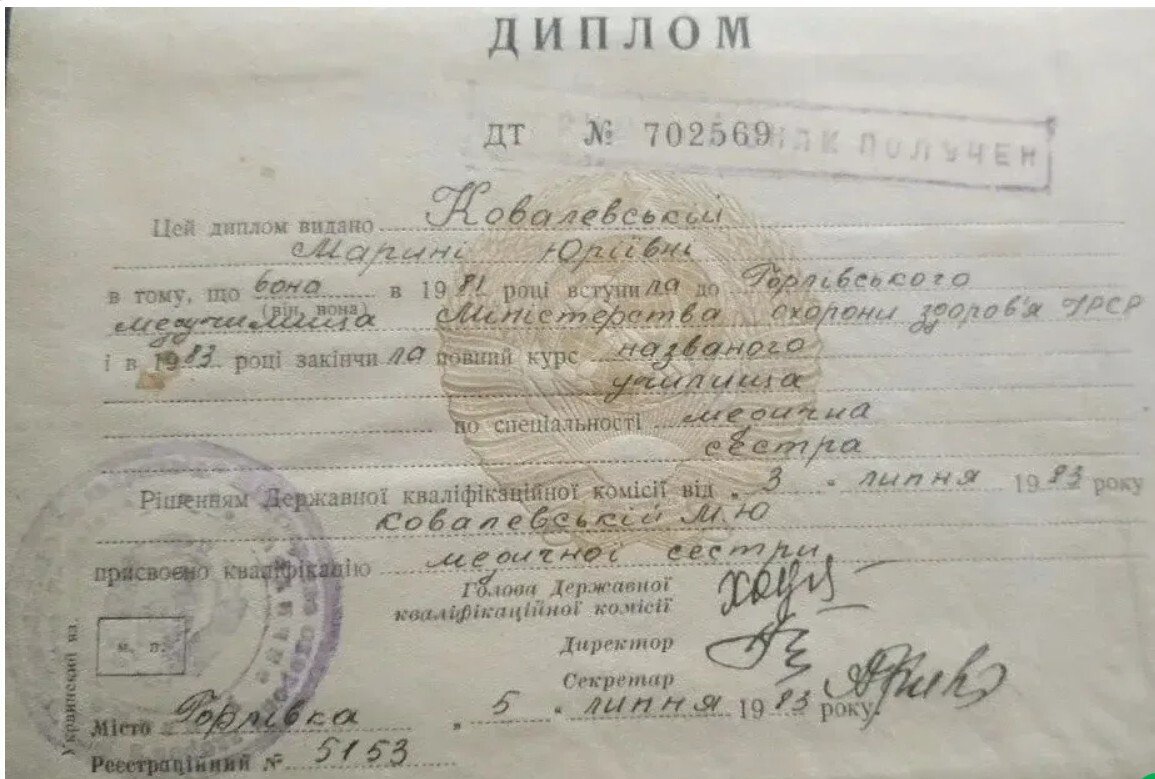 ДИПЛОМ
ДТ № 702569
ПОЛУЧЕН
Цей диплом видано Ковалевській
Марині Юріївні
в тому, що вона в 1981 році вступила до Горлівського
(він, вона)
медучилища Міністерства охорони здоров'я УРСР
і в 1983 році закінчила повний курс названого
училища
по спеціальності медична
сестра
Рішенням Державної кваліфікаційної комісії від „ 3 “ липня 1983 року
Ковалевській М.Ю
присвоєно кваліфікацію медичної сестри
Голова Державної
кваліфікаційної комісії
Директор
Секретар
м. п.
Місто Горлівка „ 5 “ липня 1983 року.
Реєстраційний № 5153
Украинский яз.